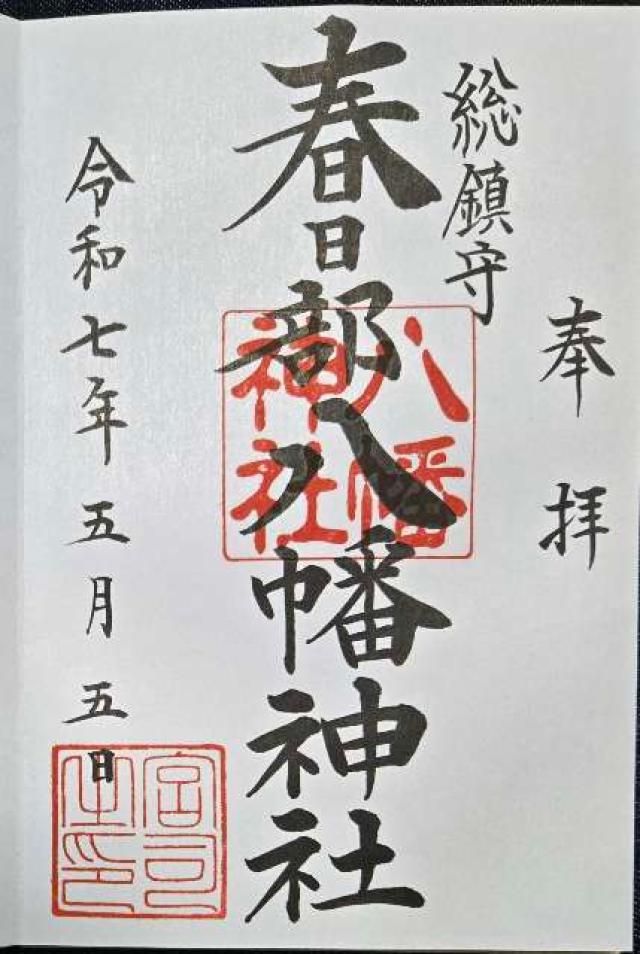 奉拝
総鎮守
春日部八幡神社
八幡
神社
令和七年五月五日
宮司
之印